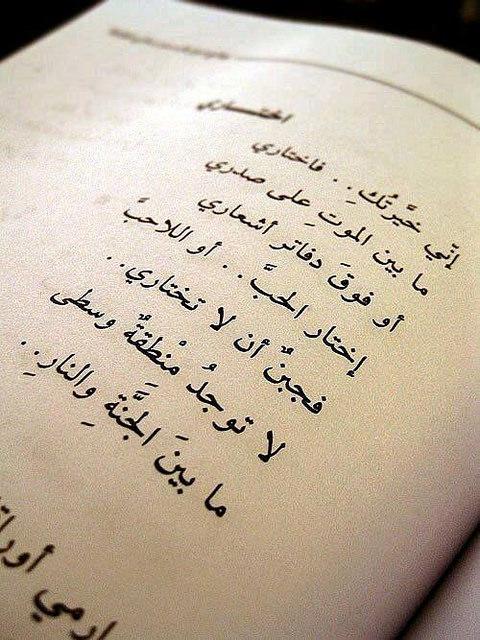 اختاري
إنّي خيَّرتُكِ . . فاختاري
ما بين الموتِ على صدري
أو فوقَ دفاترِ أشعاري
إختار الحبَّ . . أو اللاحبَّ
فجبنٌ أن لا تختاري . .
لا توجدُ مَنْطِقةٌ وسطى
ما بينَ الجنَّةِ والنارِ . .
إرمي